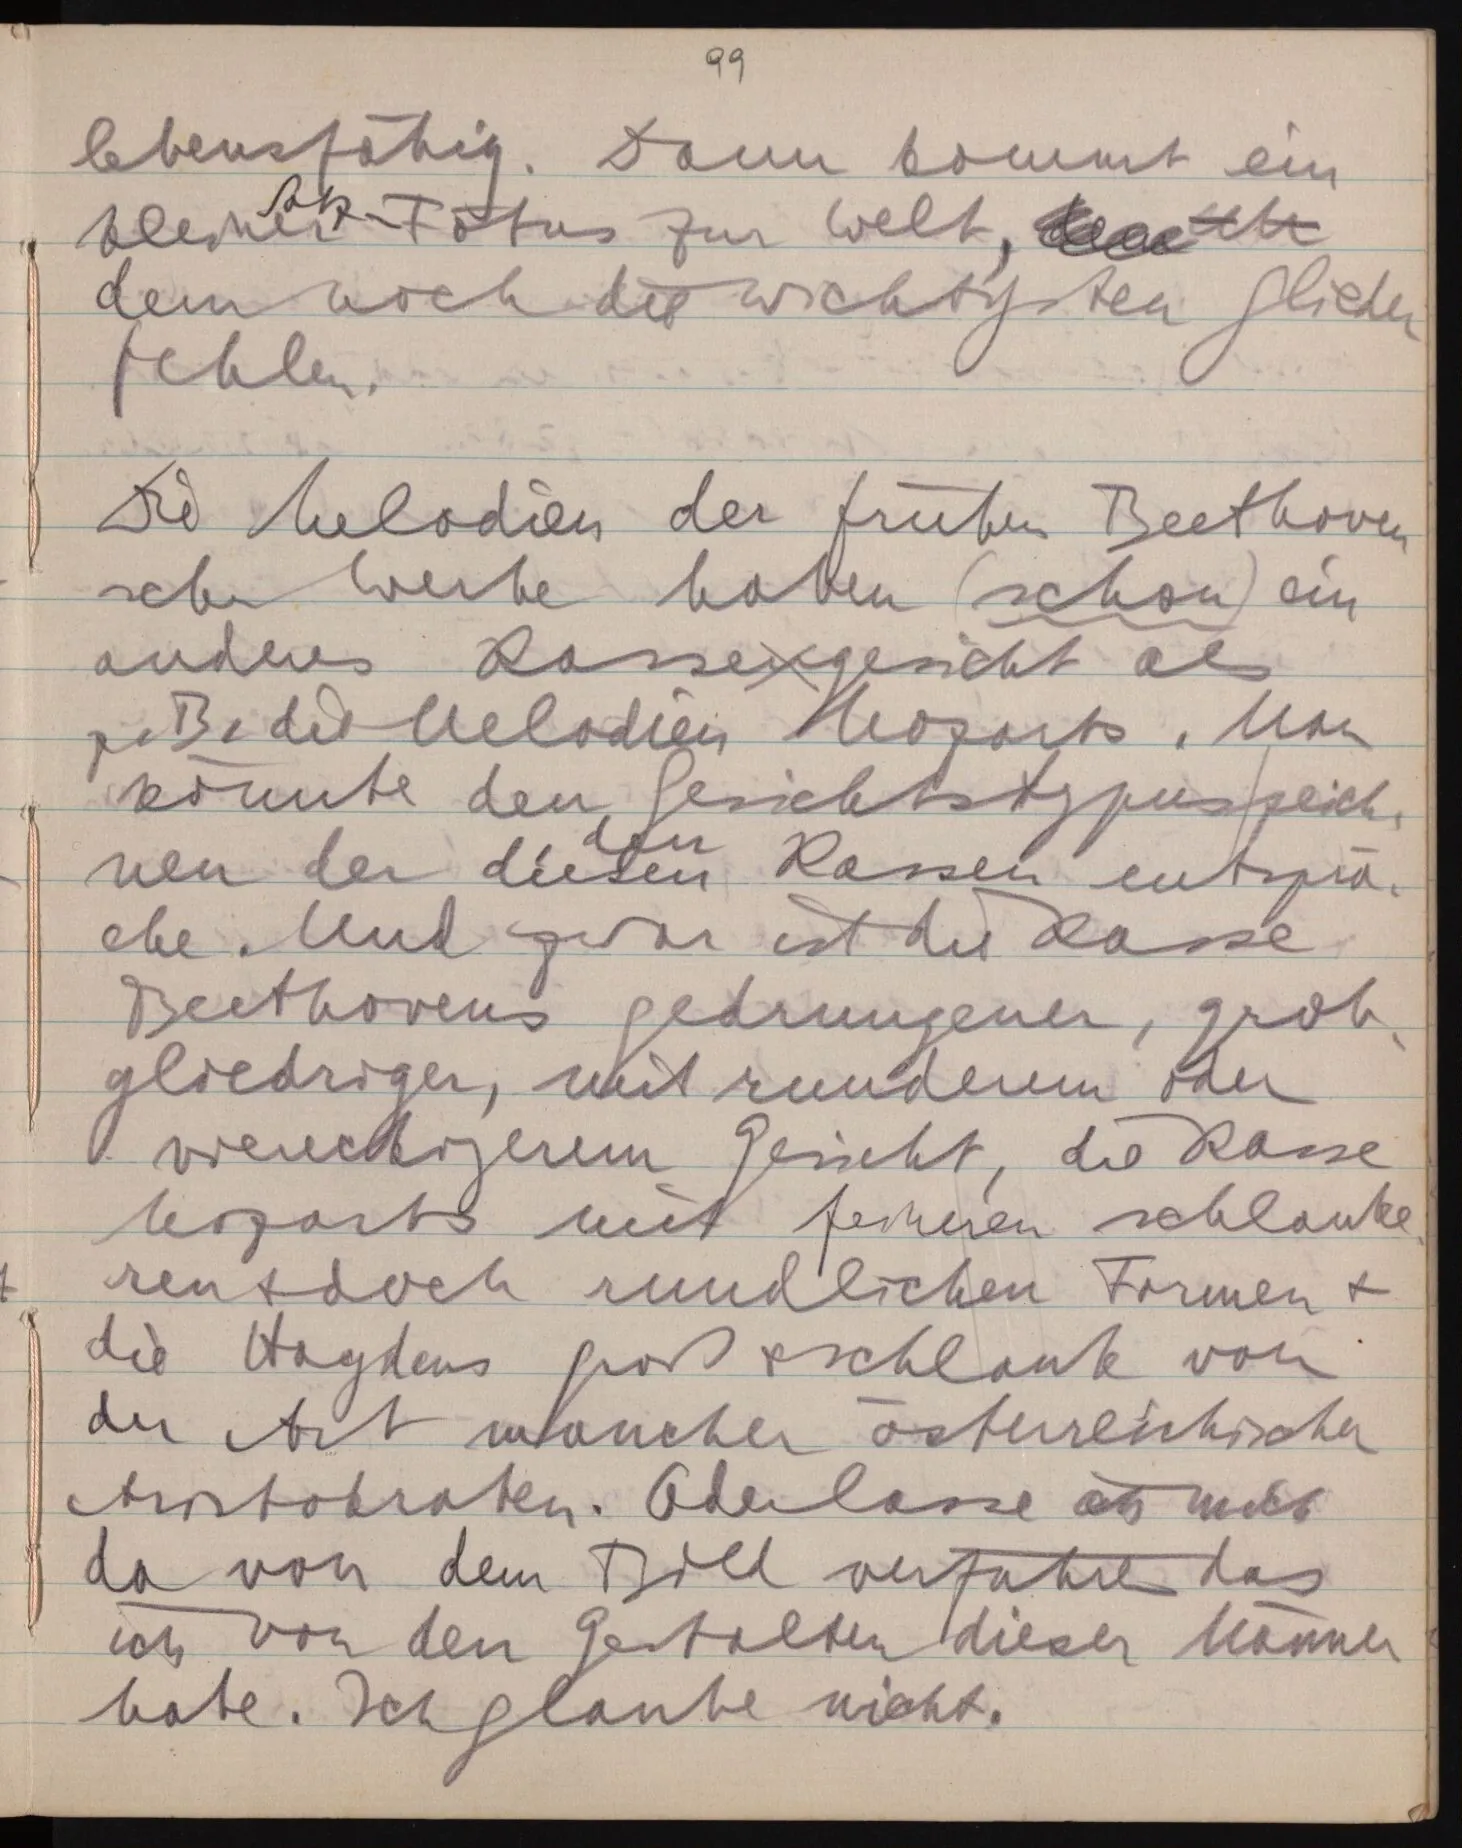 99
lebensfähig. Dann kommt ein
kleiner Fötus zur Welt,
dem noch die wichtigsten Glieder
fehlen.
Die Melodien der frühen Beethoven
schen Werke haben (schon) ein
anderes Rassegesicht als
z. B. die Melodien Mozarts. Man
könnte den Gesichtstypus zeich-
nen der diesen
den
Rassen entsprä-
che. Und zwar ist die Rasse
Beethovens gedrungener, grob-
gliedriger, mit runderem oder
viereckigerem Gesicht, die Rasse
Mozarts mit feineren schlanke-
ren & doch rundlichen Formen &
die Haydens groß & schlank von
der Art mancher österreichischer
Aristokraten. Oder lasse ich mich
da von dem Bild verführen das
ich von den Gestalten dieser Männer
habe. Ich glaube nicht.